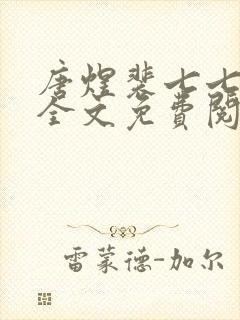 唐煌裴七七
全文免費閱
雷蒙德-加尔